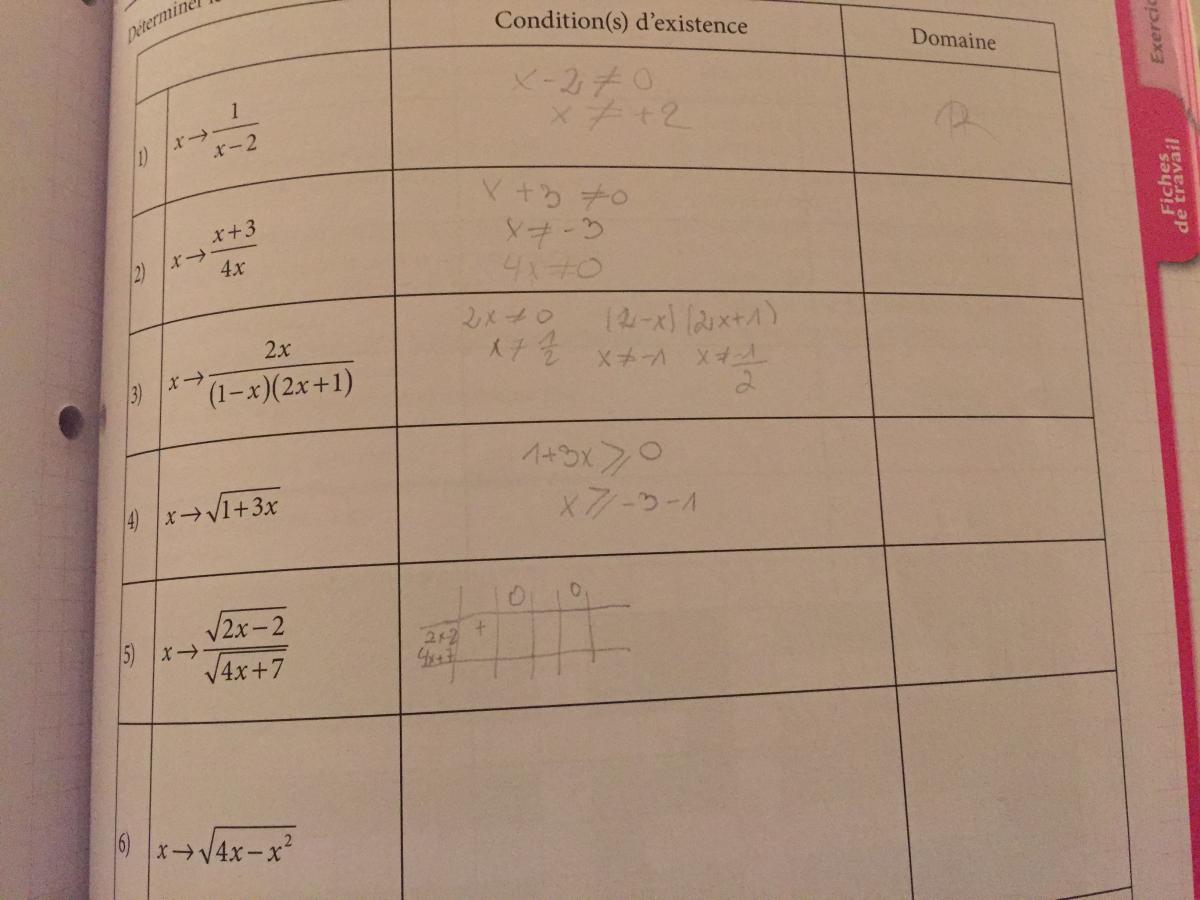 Déterminer
Condition(s) d'existence
Domaine
1) x→ 1/(x−2)
x-2 ≠ 0
x ≠ +2
R
2) x→ (x+3)/(4x)
x+3 ≠ 0
x ≠ -3
4x ≠ 0
3) x→ 2x/((1−x)(2x+1))
2x ≠ 0 (1-x) (2x+1)
x ≠ 1/2 x ≠ -1 x ≠ -1/2
4) x→ √(1+3x)
1+3x ⩾ 0
x ⩾ -3-1
5) x→ √(2x−2)/√(4x+7)
0 0
2x-2 +
4x+7
6) x→ √(4x−x²)
Exercic
Fiches
de travail